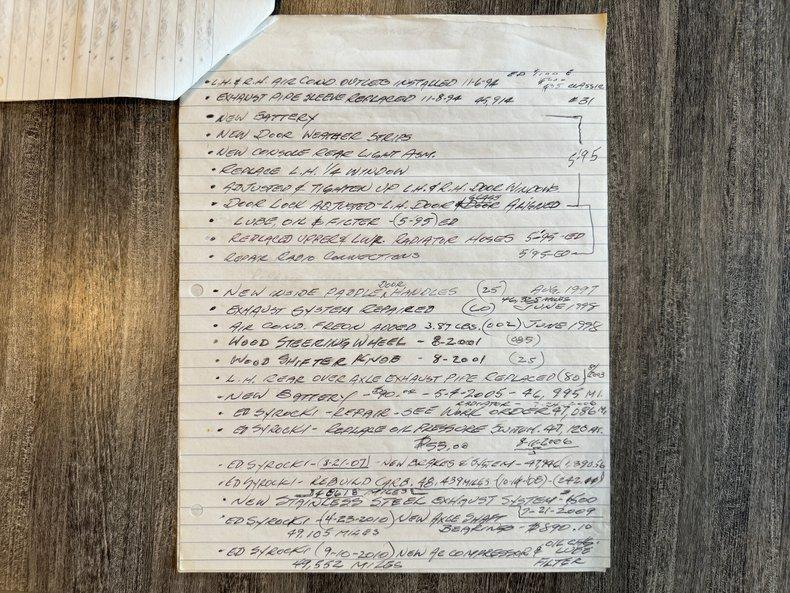 • L.H. & R.H. AIR COND OUTLETS INSTALLED 11-6-94
ED
CLASSIC
• EXHAUST PIPE SLEEVE REPLACED 11-8-94 45,914 #31
• NEW BATTERY
• NEW DOOR WEATHER STRIPS
• NEW CONSOLE REAR LIGHT ASM. 5-95
• REPLACE L.H. 1/4 WINDOW
• ADJUSTED & TIGHTEN UP L.H. & R.H. DOOR WINDOWS
• DOOR LOCK ADJUSTED - L.H. DOOR GLASS ALIGNED
• LUBE, OIL & FILTER - (5-95) ED
• REPLACED UPPER & LWR. RADIATOR HOSES 5-95-ED
• REPAIR RADIO CONNECTIONS 5-95-ED
• NEW INSIDE PADDLE DOOR HANDLES (25) AUG. 1997
• EXHAUST SYSTEM REPAIRED (60) JUNE 1998
• AIR COND. FREON ADDED 3.87 LBS. (002) JUNE 1998
• WOOD STEERING WHEEL - 8-2001
• WOOD SHIFTER KNOB - 8-2001 (25)
• L.H. REAR OVER AXLE EXHAUST PIPE REPLACED (80) 2003
• NEW BATTERY - $90.00 - 5-4-2005 - 46,995 MI.
RADIATOR
• ED SYROCKI - REPAIR - SEE WORK ORDER 47,086 M.
• ED SYROCKI - REPLACE OIL PRESSURE SWITCH. 47,120 MI.
$55.00 8-16-2006
• ED SYROCKI - (3-21-07) - NEW BRAKES & SYSTEM - 47,946
• ED SYROCKI - REBUILD CARB. 48,439 MILES (10-14-08) - (242.00)
48618 MILES
• NEW STAINLESS STEEL EXHAUST SYSTEM $1600
(7-21-2009
• ED SYROCKI (4-23-2010) NEW AXLE SHAFT
49,105 MILES BEARINGS - $890.10
• ED SYROCKI (9-10-2010) NEW A/C COMPRESSOR & OIL CHG.
LUBE
49,552 MILES FILTER